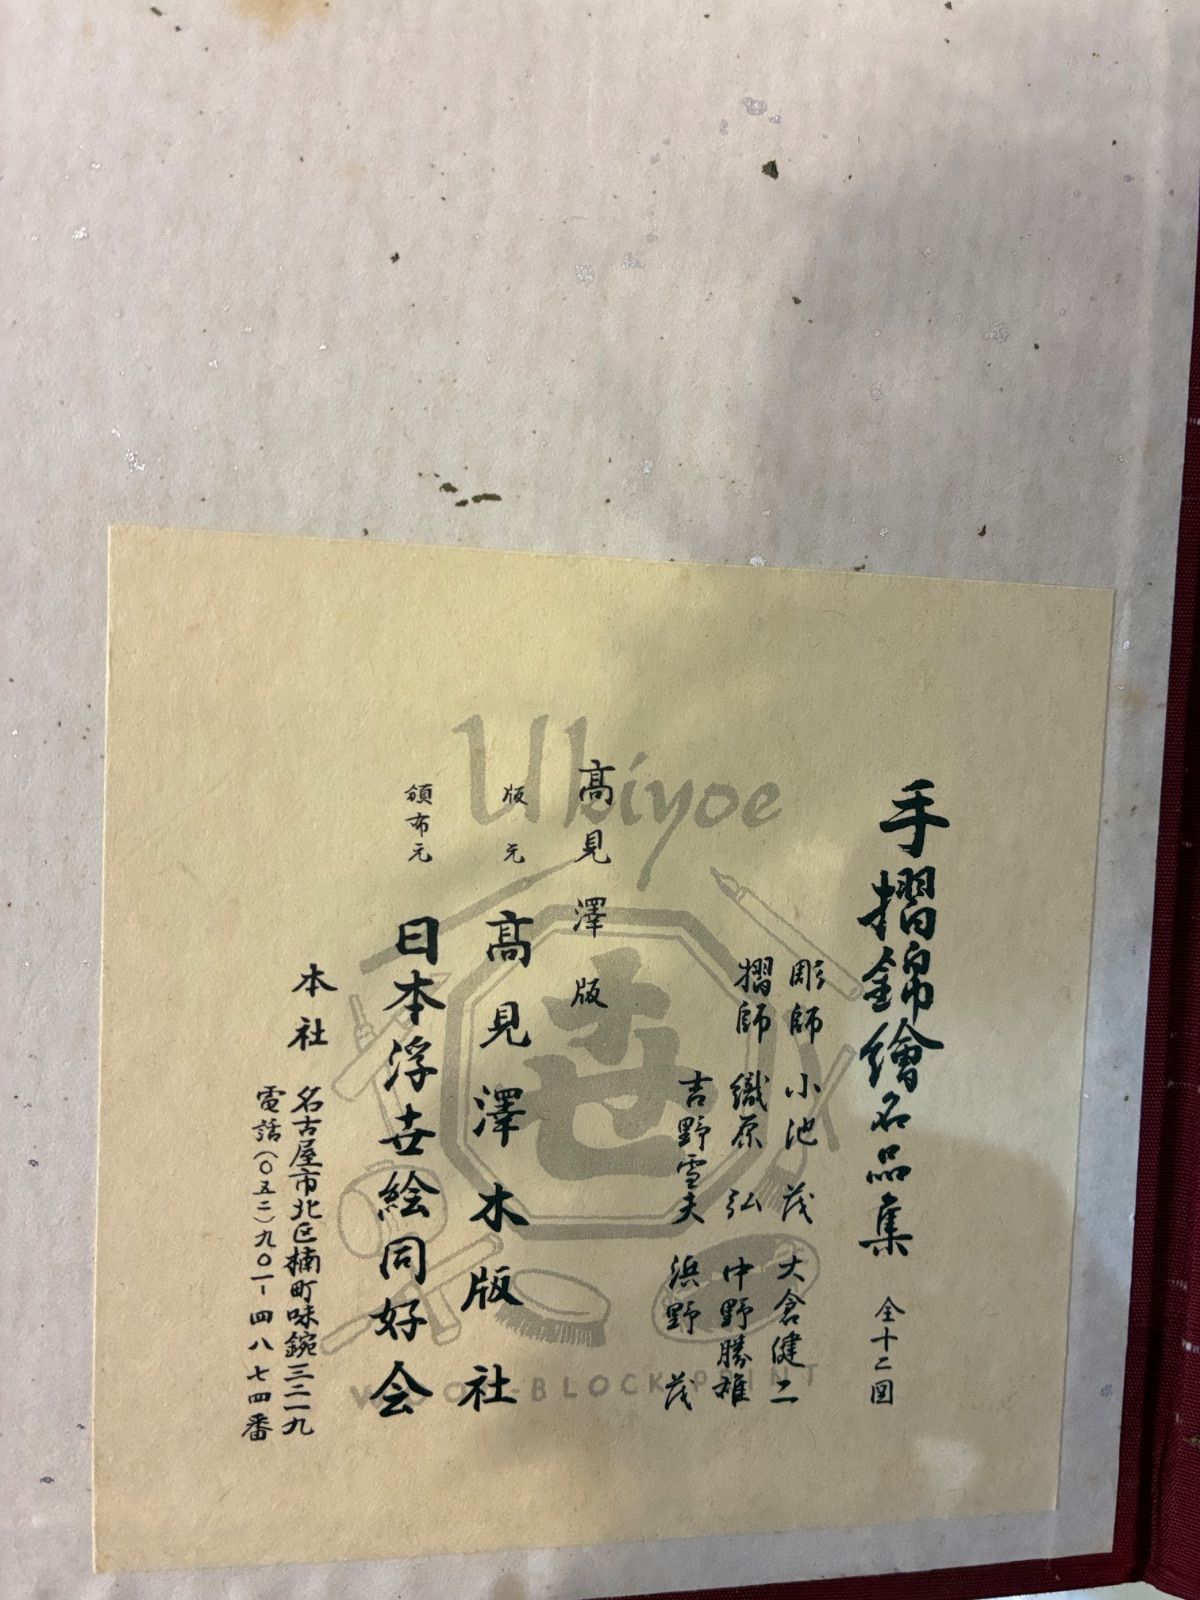 手摺錦繪名品集 全十二図
彫師 小池 茂 大倉健二
摺師 織原 弘 中野勝雄
吉野雪夫 浜野 茂
高見澤版
版元 高見澤木版社
頒布元 日本浮世絵同好会
本社 名古屋市北区楠町味鋺三二一九
電話(〇五二)九〇一-四八七四番
Ukiyoe
世
WOOD-BLOCK PRINT